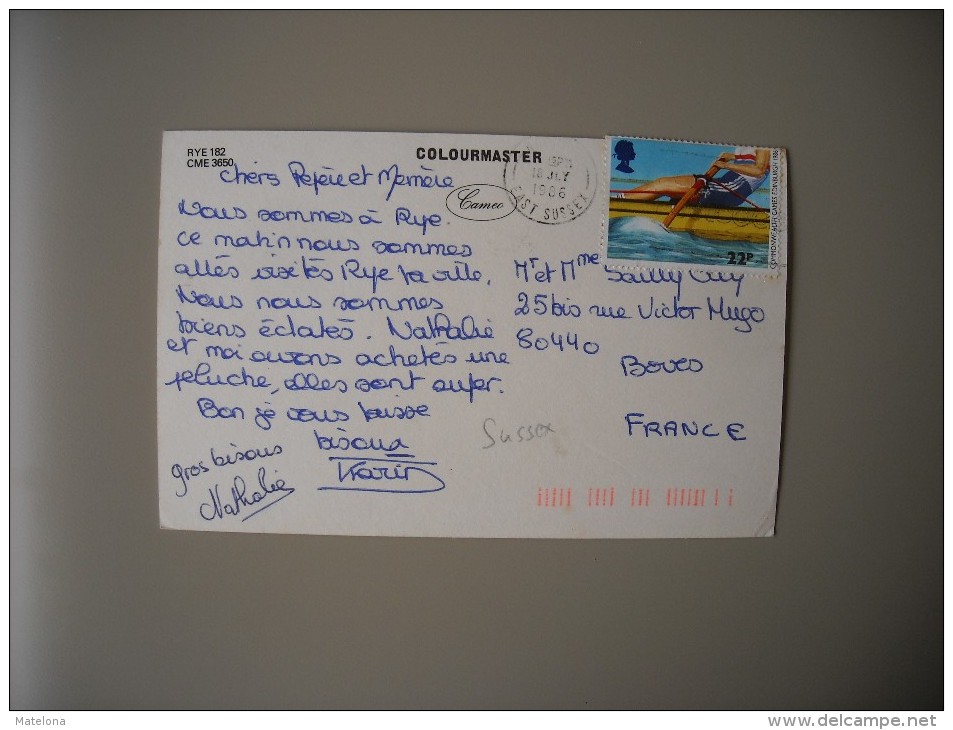 RYE 182
CME 3650
COLOURMASTER
Cameo
18 JLY
1986
EAST SUSSEX
COMMONWEALTH GAMES EDINBURGH 1986
22P
chers Pépère et Mémère
Nous sommes à Rye.
ce matin nous sommes
allés visités Rye la ville.
Nous nous sommes
biens éclatés. Nathalie
et moi avons achetés une
peluche, elles sont super.
Bon je vous laisse
bisoux
Karin
gros bisous
Nathalie
Mr et Mme
25 bis rue Victor Hugo
80440
Boves
FRANCE
Sussex
Matelona
www.delcampe.net